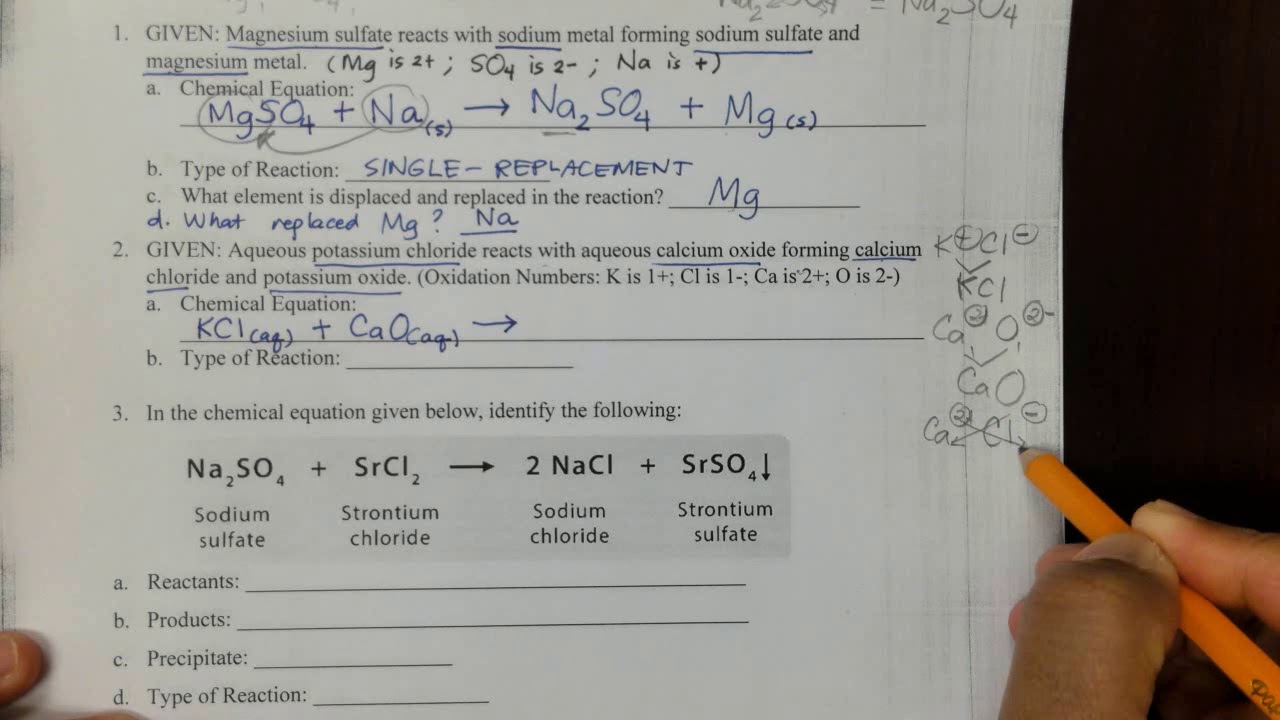 = Na₂SO₄
1. GIVEN: Magnesium sulfate reacts with sodium metal forming sodium sulfate and
magnesium metal. (Mg is 2+ ; SO₄ is 2- ; Na is +)
a. Chemical Equation:
MgSO₄ + Na(s) → Na₂SO₄ + Mg(s)
b. Type of Reaction: SINGLE - REPLACEMENT
c. What element is displaced and replaced in the reaction? Mg
d. What replaced Mg? Na
2. GIVEN: Aqueous potassium chloride reacts with aqueous calcium oxide forming calcium
chloride and potassium oxide. (Oxidation Numbers: K is 1+; Cl is 1-; Ca is 2+; O is 2-)
a. Chemical Equation:
KCl(aq) + CaO(aq) →
b. Type of Reaction:
K+ Cl-
KCl
Ca2+ O2-
CaO
Ca2+ Cl-
3. In the chemical equation given below, identify the following:
Na₂SO₄ + SrCl₂ → 2 NaCl + SrSO₄↓
Sodium sulfate Strontium chloride Sodium chloride Strontium sulfate
a. Reactants:
b. Products:
c. Precipitate:
d. Type of Reaction: